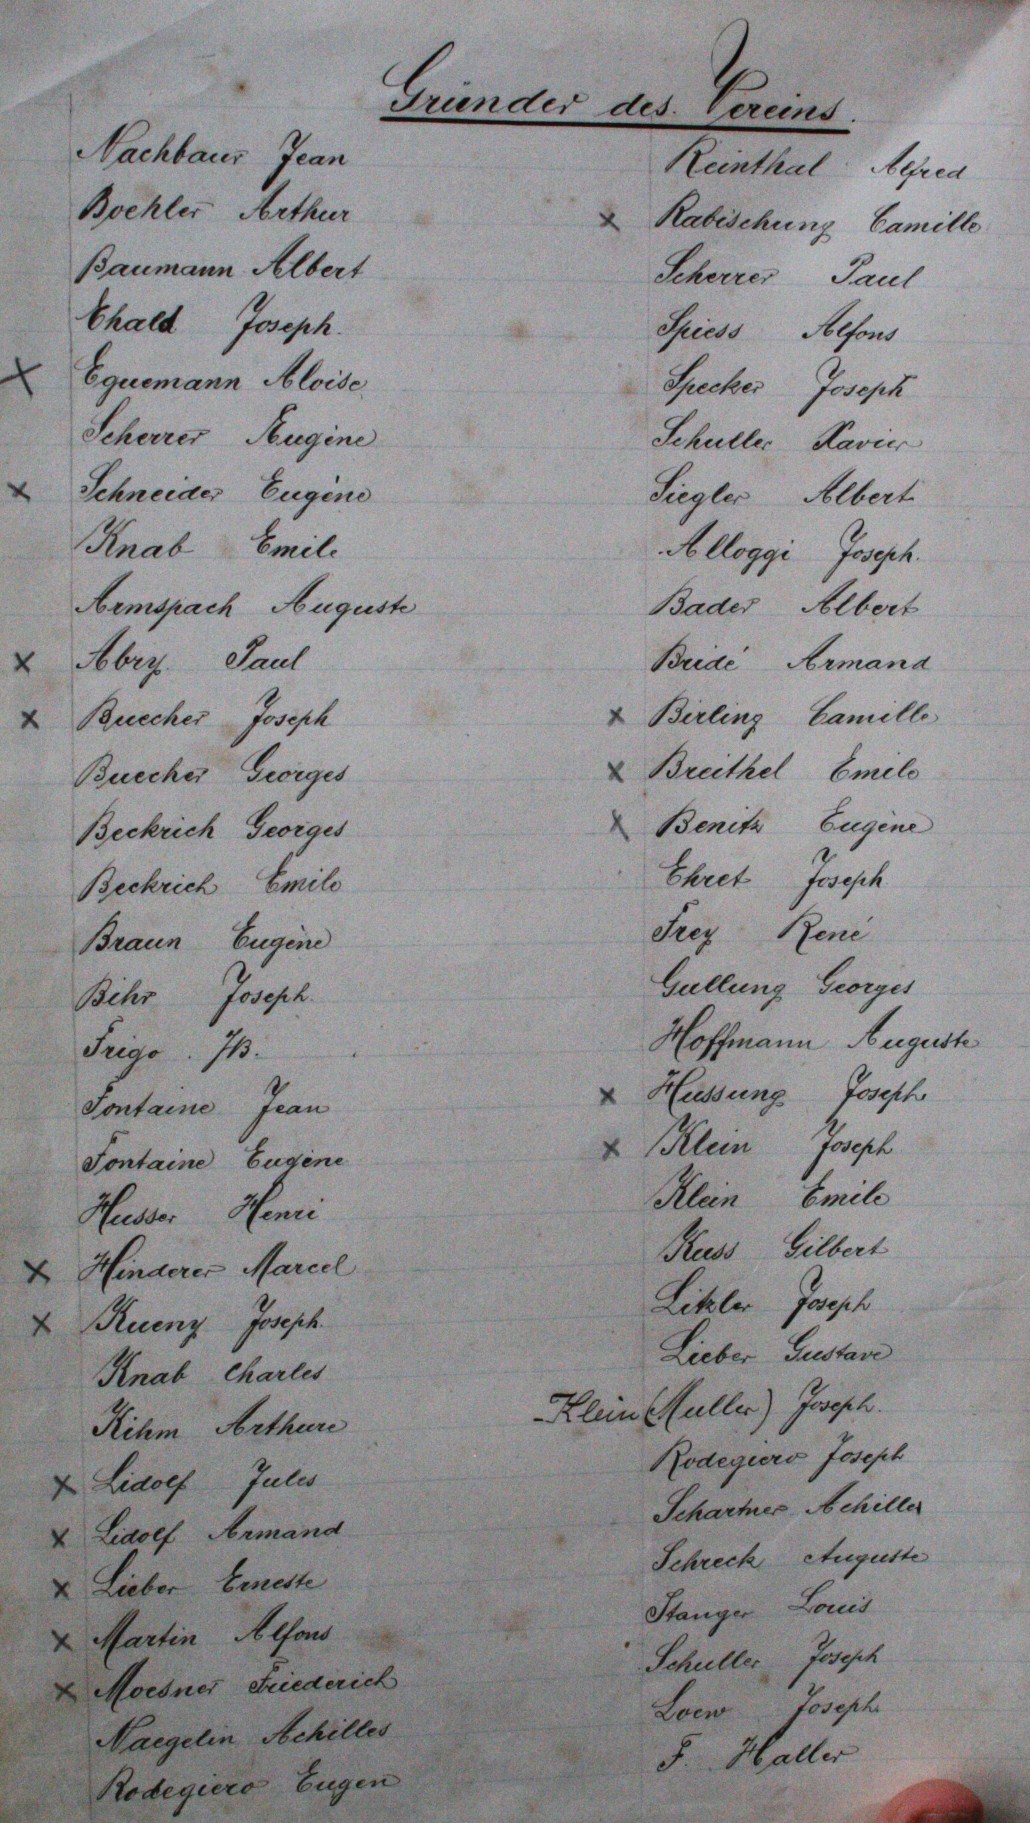 Gründer des Vereins.
Nachbaur Jean
Boehler Arthur
Baumann Albert
Ehald Joseph.
x Eguemann Aloise
Scherrer Augène
x Schneider Eugène
Knab Emile
Armspach Auguste
x Abry Paul
x Buecher Joseph
Buecher Georges
Beckrich Georges
Beckrich Emile
Braun Eugène
Bihr Joseph.
Frigo. JB.
Fontaine Jean
Fontaine Eugène
Husser Henri
x Hinderer Marcel
x Kueny Joseph.
Knab Charles
Kihm Arthure
x Lidolf Jules
x Lidolf Armand
x Lieber Erneste
x Martin Alfons
x Moesner Friederich
Naegelin Achilles
Rodegiero Eugen
Reinthal Alfred
x Rabischung Camille
Scherrer Paul
Spiess Alfons
Specker Joseph
Schuller Xavier
Siegler Albert
Alloggi Joseph.
Bader Albert
Bridé Armand
x Birling Camille
x Breithel Emile
x Benitz Eugène
Ehret Joseph
Frey René
Gullung Georges
Hoffmann Auguste
x Hussung Joseph
x Klein Joseph
Klein Emile
Kuss Gilbert
Litzler Joseph
Lieber Gustave
Klein (Muller) Joseph.
Rodegiero Joseph
Schartner Achilles
Schreck Auguste
Stanger Louis
Schuller Joseph
Loew Joseph
F. Haller